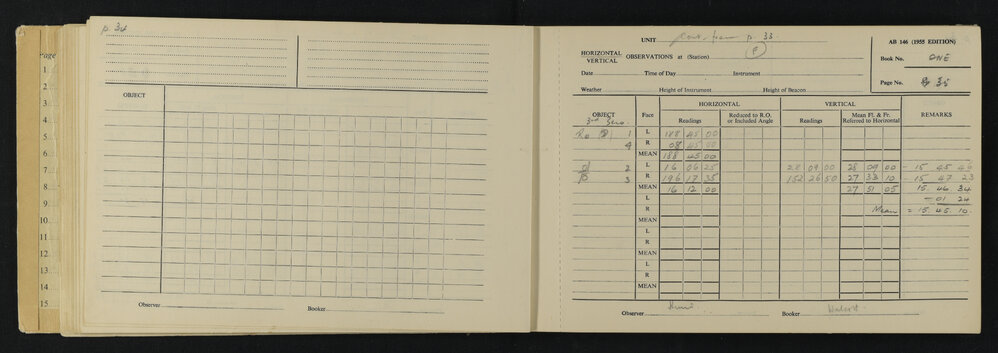 p. 34
OBJECT
Observer
Booker
Page
1
2
3
4
5
6
7
8
9
10
11
12
13
14
15
UNIT Cont. from p. 33.
AB 146 (1955 EDITION)
HORIZONTAL
VERTICAL
OBSERVATIONS at (Station)
Book No. ONE
Date Time of Day Instrument
Page No. 35
Weather Height of Instrument Height of Beacon
OBJECT Face HORIZONTAL VERTICAL REMARKS
Readings Reduced to R.O. or Included Angle Readings Mean Fl. & Fr. Referred to Horizontal
3rd
R.O. 1 L 188 45 00
4 R 08 45 00
MEAN 188 45 00
2 L 16 06 25 28 09 00 28 09 00 - 15 45
3 R 196 17 35 152 26 50 27 33 10 - 15 47 23
MEAN 16 12 00 27 51 05 15 46 34
L - 01 24
R Mean = 15.45.10.
MEAN
L
R
MEAN
L
R
MEAN
Observer
Booker